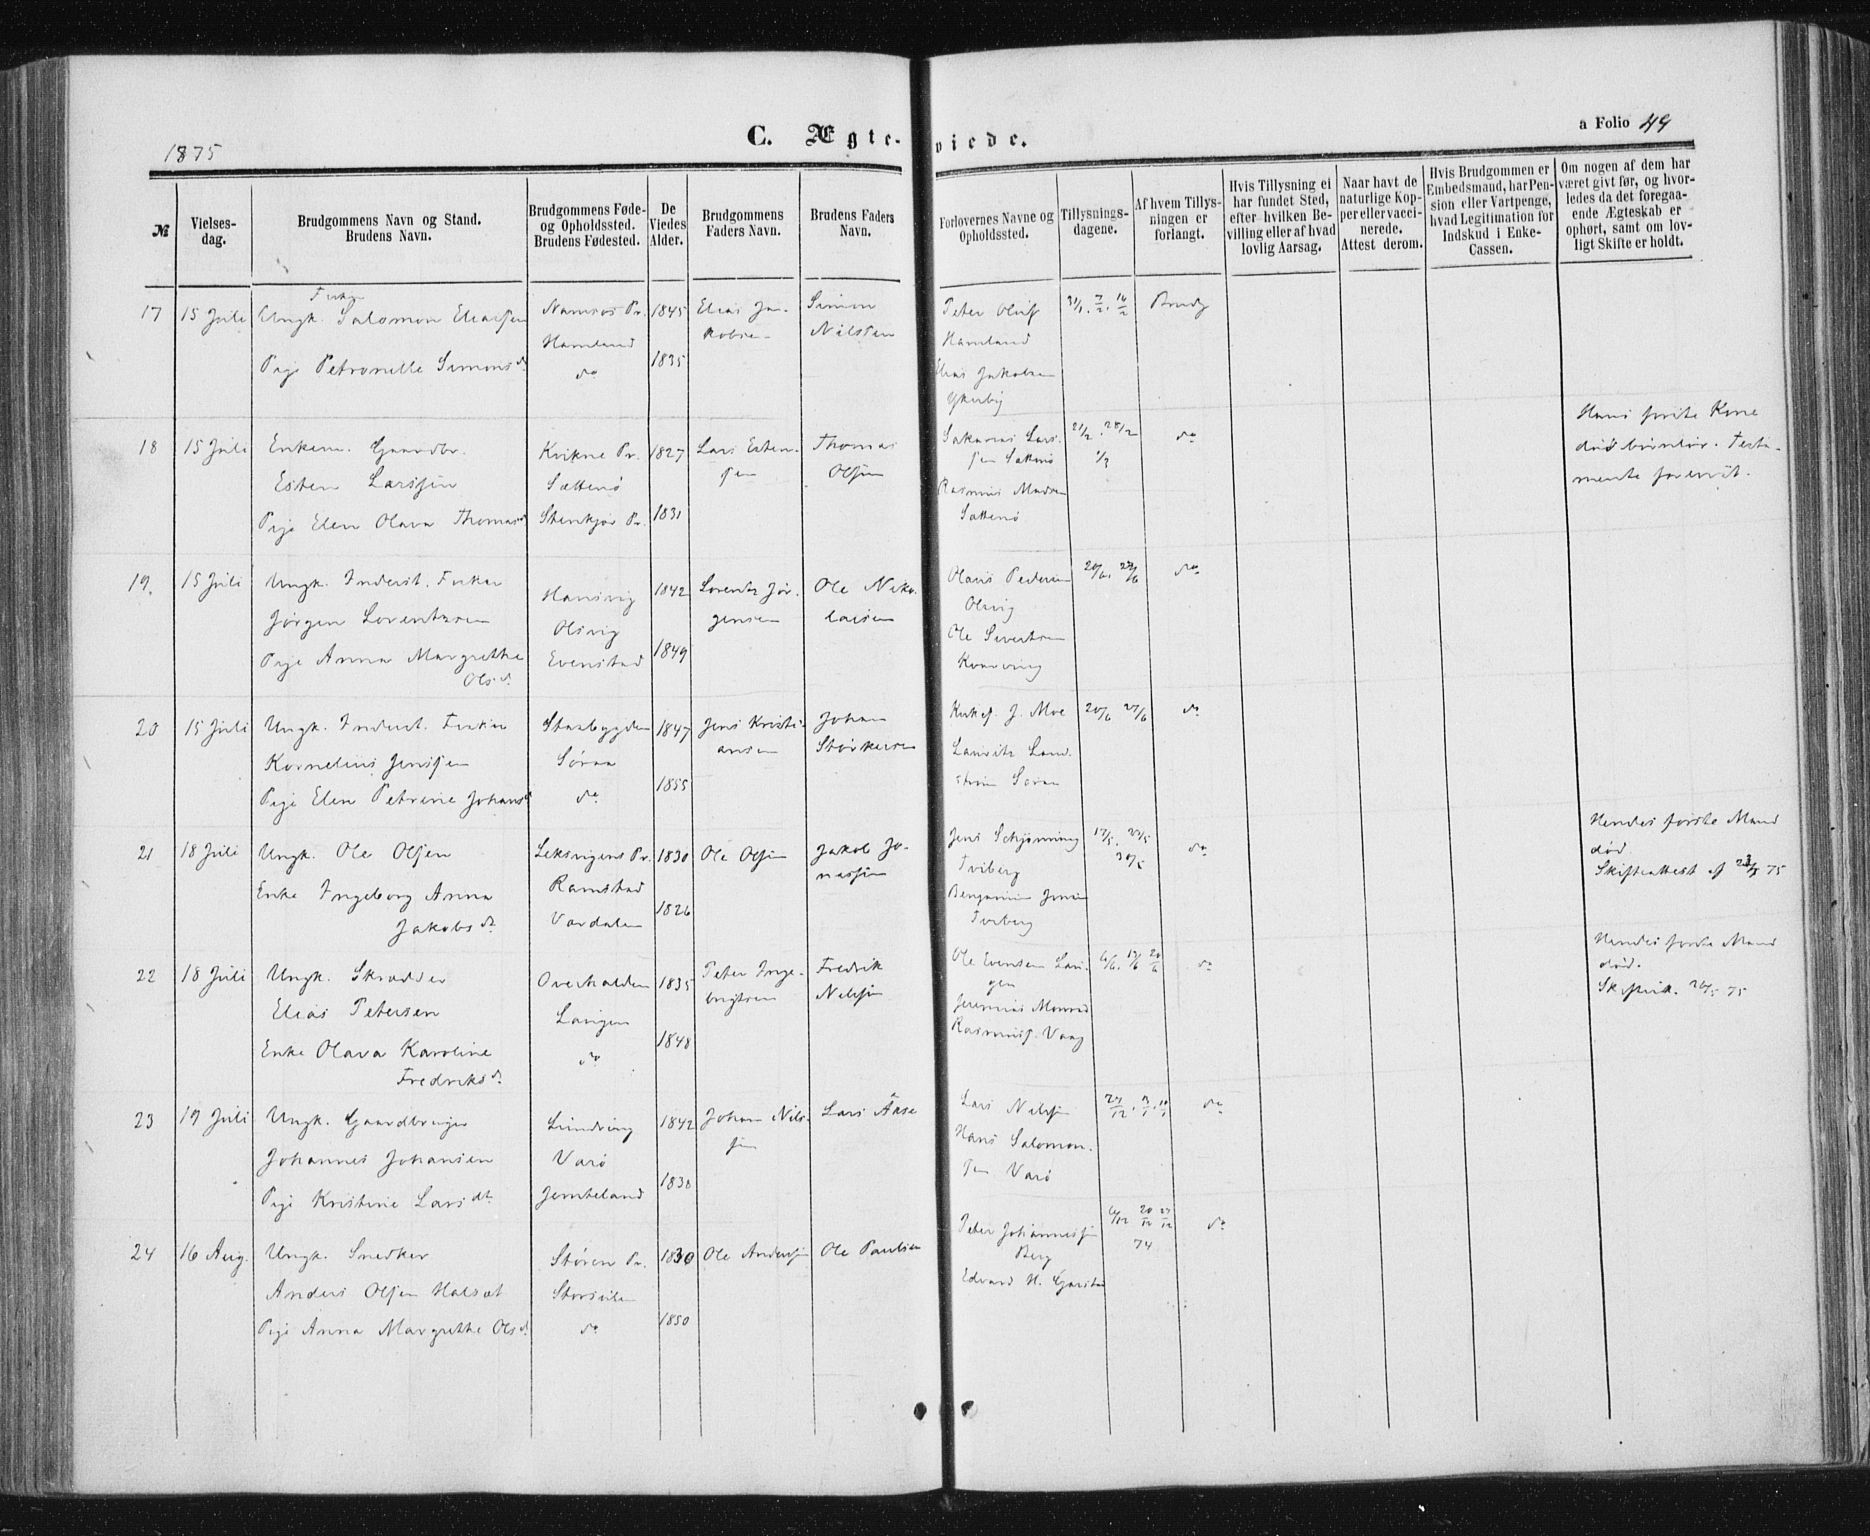 1875
C. Ægte-viede.
a Folio 49
№
Vielses-dag.
Brudgommens Navn og Stand.
Brudens Navn.
Brudgommens Føde-
og Opholdssted.
Brudens Fødested.
De
Viedes
Alder.
Brudgommens
Faders Navn.
Brudens Faders
Navn.
Forlovernes Navne og
Opholdssted.
Tillysnings-
dagene.
Af hvem Tillys-
ningen er
forlangt.
Hvis Tillysning ei
har fundet Sted,
efter hvilken Be-
villing eller af hvad
lovlig Aarsag.
Naar havt de
naturlige Kop-
per eller vacci-
nerede.
Attest derom.
Hvis Brudgommen er
Embedsmand, har Pen-
sion eller Vartpenge,
hvad Legitimation for
Indskud i Enke-
Cassen.
Om nogen af dem har
været givt før, og hvor-
ledes da det foregaa-
ende Ægteskab er
ophørt, samt om lov-
ligt Skifte er holdt.
17 15 Juli Ungk. Fisker Salomon Eliassen
Pige Petronelle Simonsd.
Namsos Pr.
Hamland
do
1845
1835
Elias Ja-
kobsen
Simon
Nilssen
Peter Oluf
Hamland
Elias Jakobsen
31/1. 7/2. 14/2
Brudg
18 15 Juli Enkem. Gaardbr.
Esten Larssen
Pige Elen Olava Thomasd
Kvikne Pr.
Sættenø
Stenkjær Pr.
1827
1831
Lars Esten-
sen
Thomas
Olssen
Sakarias Lars-
sen Sættenø
Rasmus Madsen
Sættenø
21/2. 28/2
do
Hans første Kone
død barnløs. Testa-
mente forevist.
19. 15 Juli Ungk. Inderst. Fisker
Jørgen Lorentssen
Pige Anna Margrethe
Olsd.
Hansvig
Olsvig
Evenstad
1842
1849
Lorents Jør-
gensen
Ole Niko-
laisen
Olaus Pedersen
Olsvig
Ole Sivertsen
20/6. 27/6
do
20 15 Juli Ungk. Inderst. Fisker
Kornelius Jenssen
Pige Elen Petrine Johansd
Stadsbygden
Søraa
do
1847
1855
Jens Kristi-
ansen
Johan
Størkersen
Kirkes. J. Moe
Lauritz Land-
strøm Søraa
20/6 27/6
do
21 18 Juli Ungk. Ole Olsen
Enke Ingeborg Anna
Jakobsd.
Leksvigens Pr.
Ramstad
Værdalen
1830
1826
Ole Olsen
Jakob Jo-
nassen
Jens Schjønning
Tviberg
Benjamin Jensen
Tviberg
17/5. 23/5
30/5
do
Hendes første Mand
død.
Skifteattest af 23/5 75
22 18 Juli Ungk. Skrædder
Elias Petersen
Enke Olava Karoline
Fredriksd.
Overhalden
Laugen
do
1835
1848
Peter Inge-
brigtsen
Fredrik
Nilssen
Ole Evensen Lau-
gen
Jeremias Monrad
Rasmuss. Vaag
6/6. 13/6 20/6
do
Hendes første Mand
død.
23 19 Juli Ungk. Gaardbruger
Johannes Johansen
Pige Kristine Larsdt.
Lundring
Varø
Jemteland
1842
1830
Johan Nils-
sen
Lars Aase
Lars Nilssen
Hans Salomon-
sen Varø
27/12. 3/1. 10/1
do
24 16 Aug. Ungk. Snedker
Anders Olsen Halsæt
Pige Anna Margrethe Olsd.
Støren Pr.
do
1830
1850
Ole Anderssen
Ole Paulsen
Peter Johannessen
Berg
Edvard H. Garstad
6/12 20/12 27/12
74
do